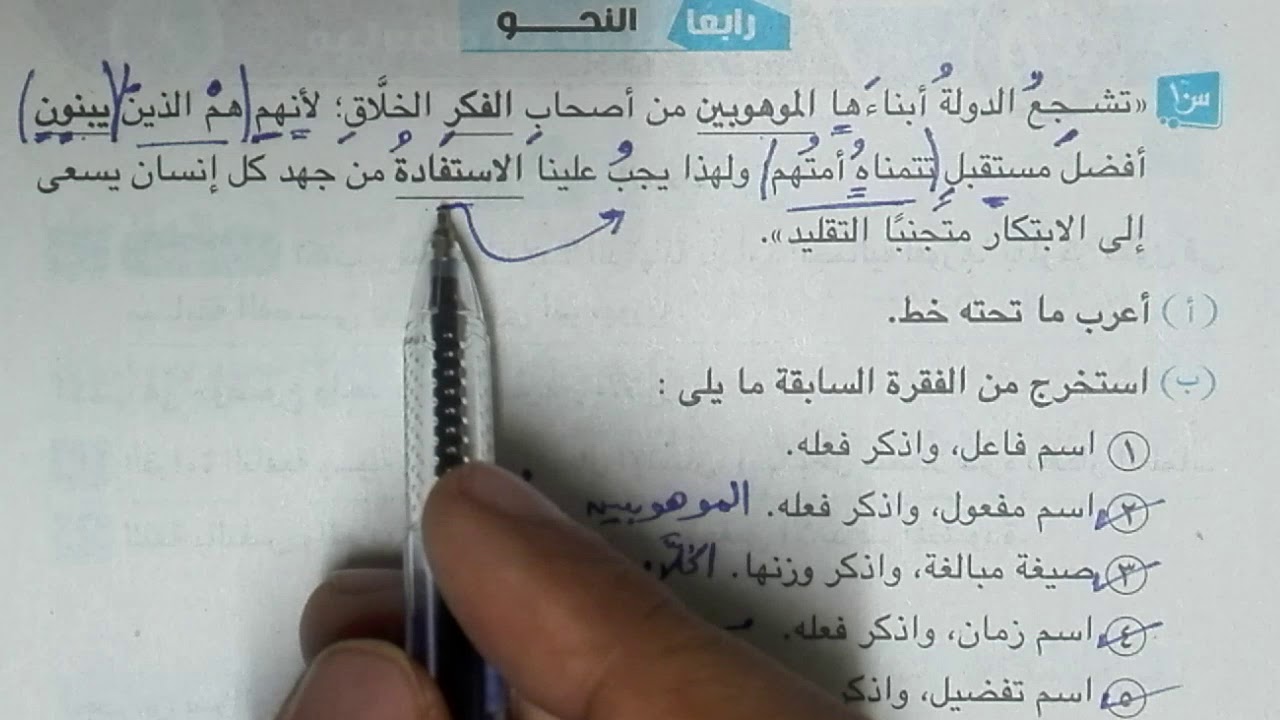 رابعا النحو
س١ «تشجعُ الدولةُ أبناءَها الموهوبين من أصحابِ الفكرِ الخلَّاقِ؛ لأنهم (همْ الذين) (يبنون)
أفضلَ مستقبلٍ (تتمناهُ أمتُهم) ولهذا يجبُ علينا الاستفادةُ من جهد كل إنسان يسعى
إلى الابتكار متجنبًا التقليد».
(أ) أعرب ما تحته خط.
(ب) استخرج من الفقرة السابقة ما يلى :
١ اسم فاعل، واذكر فعله.
٢ اسم مفعول، واذكر فعله. الموهوبين
٣ صيغة مبالغة، واذكر وزنها.
٤ اسم زمان، واذكر فعله.
٥ اسم تفضيل، واذكر